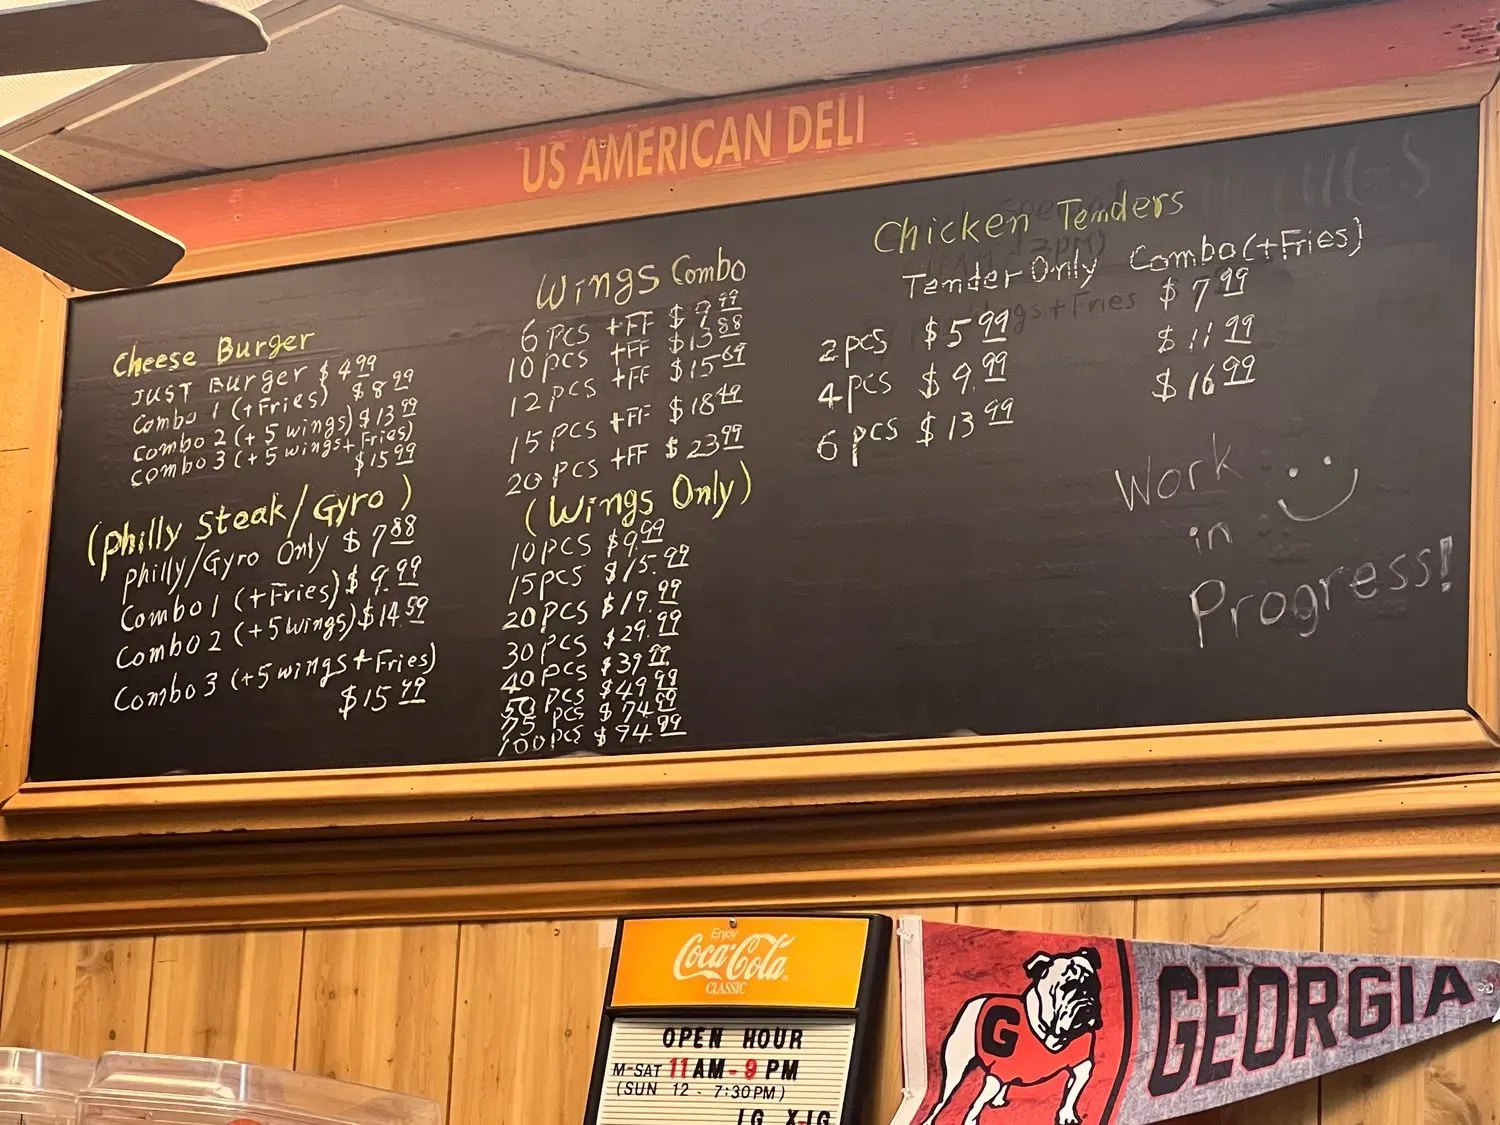 US AMERICAN DELI
Cheese Burger
JUST BURGER $4.99
Combo 1 (+Fries) $8.99
Combo 2 (+ 5 wings) $13.99
Combo 3 (+ 5 wings + Fries)
$15.99
(Philly Steak/Gyro)
Philly/Gyro Only $7.88
Combo 1 (+Fries) $9.99
Combo 2 (+5 wings) $14.59
Combo 3 (+5 wings + Fries)
$15.99
Wings Combo
6 PCS +FF $9.99
10 PCS +FF $13.88
12 PCS +FF $15.69
15 PCS +FF $18.49
20 PCS +FF $23.99
(Wings Only)
10 PCS $9.99
15 PCS $15.99
20 PCS $19.99
30 PCS $29.99
40 PCS $39.99
50 PCS $49.99
75 PCS $74.99
100 PCS $94.99
Chicken Tenders
Tender Only Combo (+Fries)
2 pcs $5.99 $7.99
4 pcs $9.99 $11.99
6 pcs $13.99 $16.99
Work
in
Progress!
Enjoy
Coca-Cola
CLASSIC
OPEN HOUR
M-SAT 11AM - 9 PM
(SUN 12 - 7:30PM)
LG X-LG
G
GEORGIA